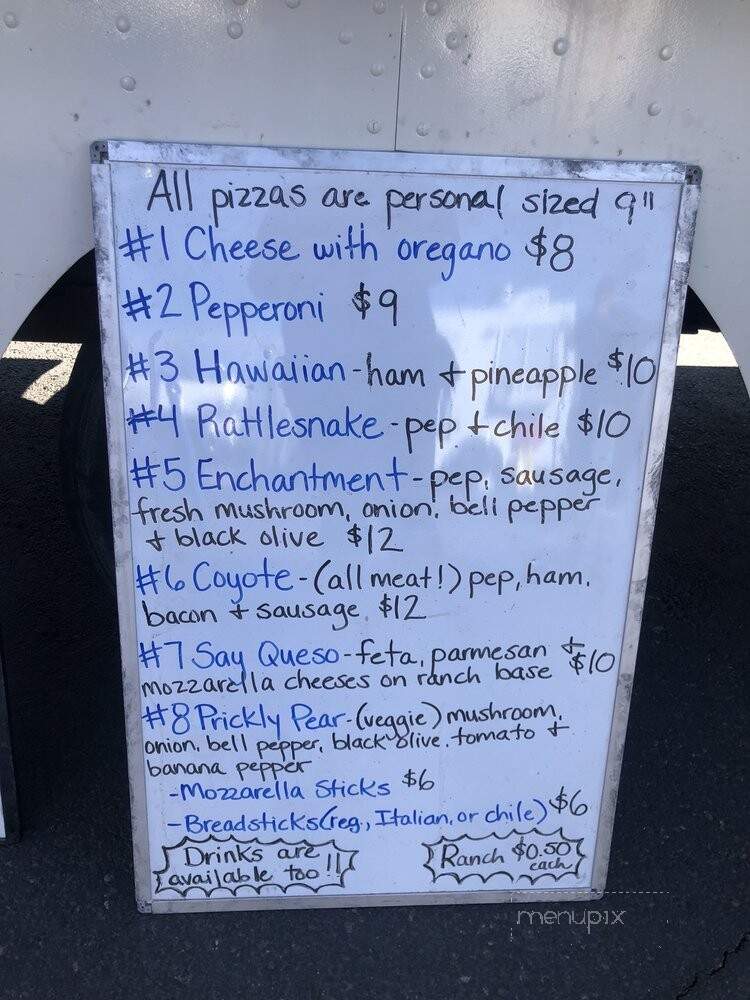 All pizzas are personal sized 9"
#1 Cheese with oregano $8
#2 Pepperoni $9
#3 Hawaiian - ham + pineapple $10
#4 Rattlesnake - pep + chile $10
#5 Enchantment - pep, sausage,
fresh mushroom, onion, bell pepper
+ black olive $12
#6 Coyote - (all meat!) pep, ham,
bacon + sausage $12
#7 Say Queso - feta, parmesan + $10
mozzarella cheeses on ranch base
#8 Prickly Pear - (veggie) mushroom,
onion, bell pepper, black olive, tomato +
banana pepper
- Mozzarella Sticks $6
- Breadsticks (reg., Italian, or chile) $6
Drinks are
available too!!
Ranch $0.50
each
menupix